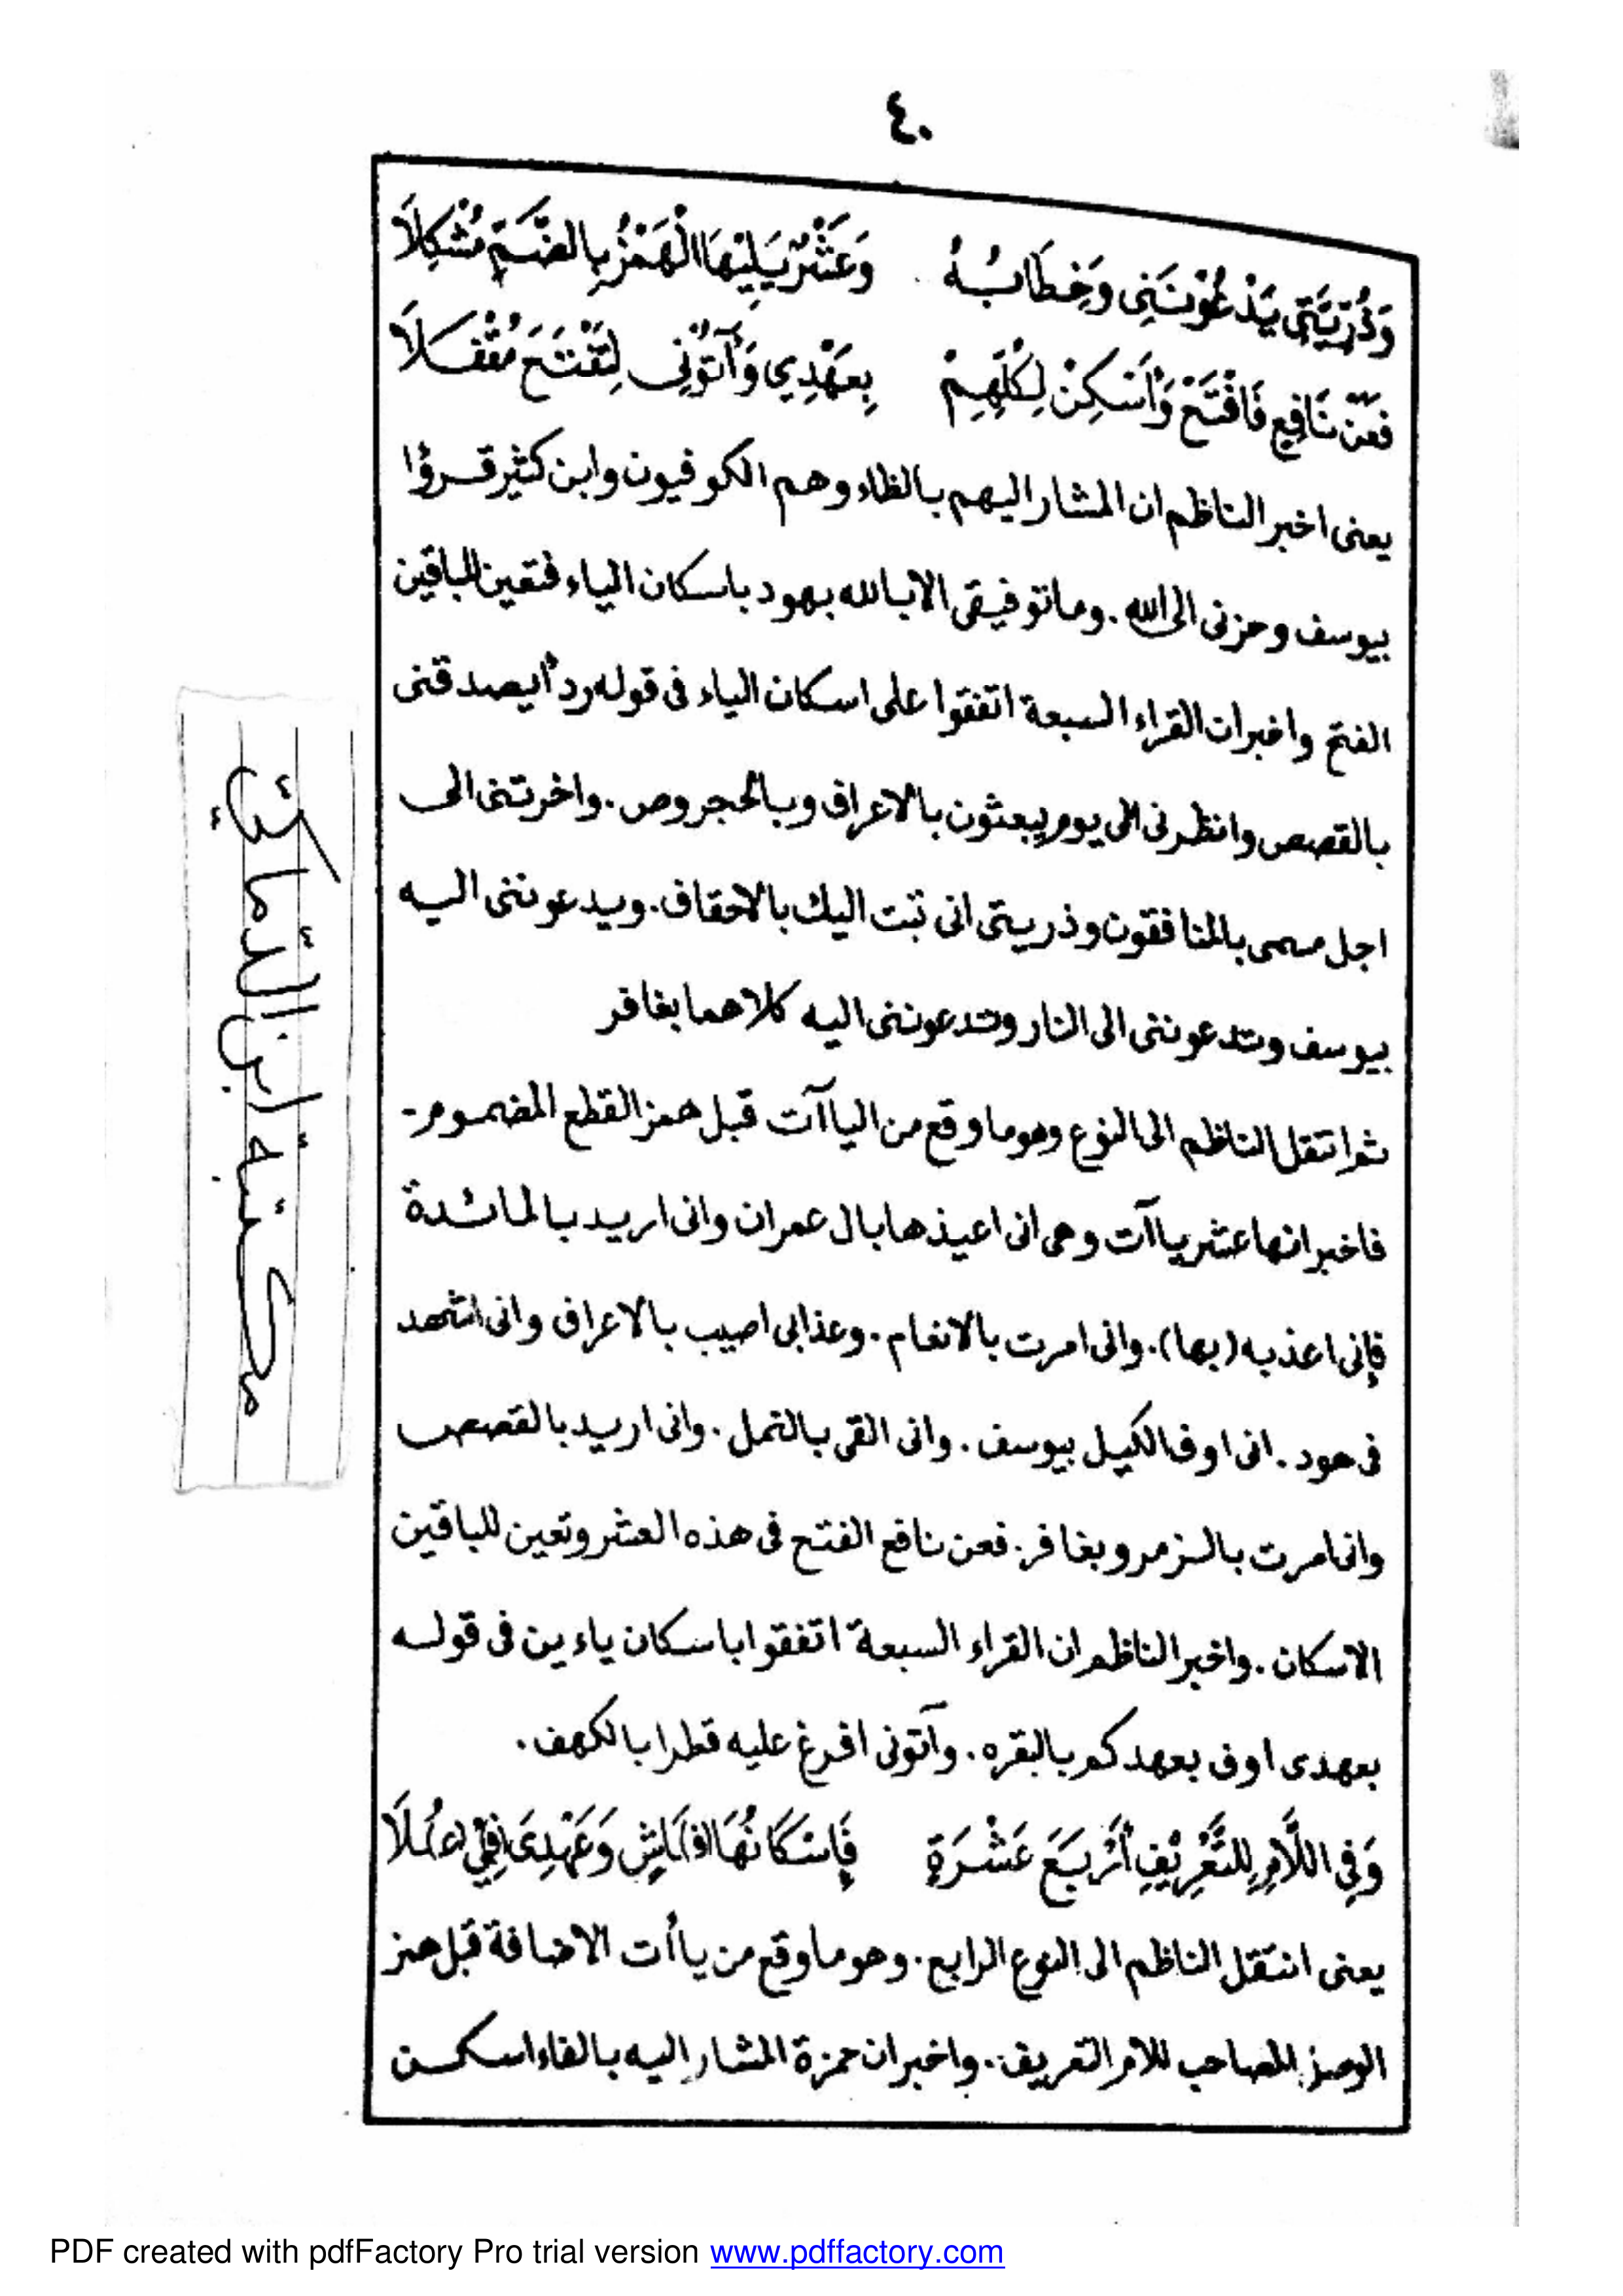 ٤٠
وَذُرِّيَّتِى يَدْعُوْنَنِى وَخِطَابُهُ وَعَشْرٌ يَلِيْهَا الْهَمْزُ بِالضَّمِّ مُشْكِلَا
فَعَنْ نَافِعٍ فَافْتَحْ وَأَسْكِنْ لِكُلِّهِمْ بِعَهْدِي وَآتُوْنِى لِتَفْتَحَ مُقْفَلَا
يعنى اخبر الناظم ان المشار اليهم بالظاء وهم الكوفيون وابن كثير قرؤا
بيوسف وحزنى الى الله . وما توفيقى الا بالله بهود باسكان الياء فتعين للباقين
الفتح واخبر ان القراء السبعة اتفقوا على اسكان الياء فى قوله ردأ يصدقنى
بالقصص وانظرنى الى يوم يبعثون بالاعراف وبالحجر وص . واخرتنى الى
اجل مسمى بالمنافقون وذريتى انى تبت اليك بالاحقاف . ويدعوننى اليه
بيوسف وتدعوننى الى النار وتدعوننى اليه كلاهما بغافر
ثم انتقل الناظم الى النوع وهو ما وقع من الياآت قبل همز القطع المضموم -
فاخبر انها عشر ياآت وهى انى اعيذها بال عمران وانى اريد بالمائدة
فإنى اعذبه (بها) . وانى امرت بالانعام . وعذابى اصيب بالاعراف وانى اشهد
فى هود . انى اوف الكيل بيوسف . وانى القى بالنمل . وانى اريد بالقصص
وانى امرت بالزمر وبغافر . فعن نافع الفتح فى هذه العشر وتعين للباقين
الاسكان . واخبر الناظم ان القراء السبعة اتفقوا باسكان ياءين فى قوله
بعهدى اوف بعهدكم بالبقره . وآتونى افرغ عليه قطرا بالكهف .
وَفِى اللَّامِ لِلتَّعْرِيْفِ أَرْبَعَ عَشْرَةٍ فَإِسْكَانُهَا فَاشٍ وَعَهْدِىَ فِيْ عُلَا
يعنى انتقل الناظم الى النوع الرابع . وهو ما وقع من ياأت الاضافة قبل همز
الوصل المصاحب للام التعريف . واخبر ان حمزة المشار اليه بالفاء اسكن
مكتبة ابن
PDF created with pdfFactory Pro trial version www.pdffactory.com